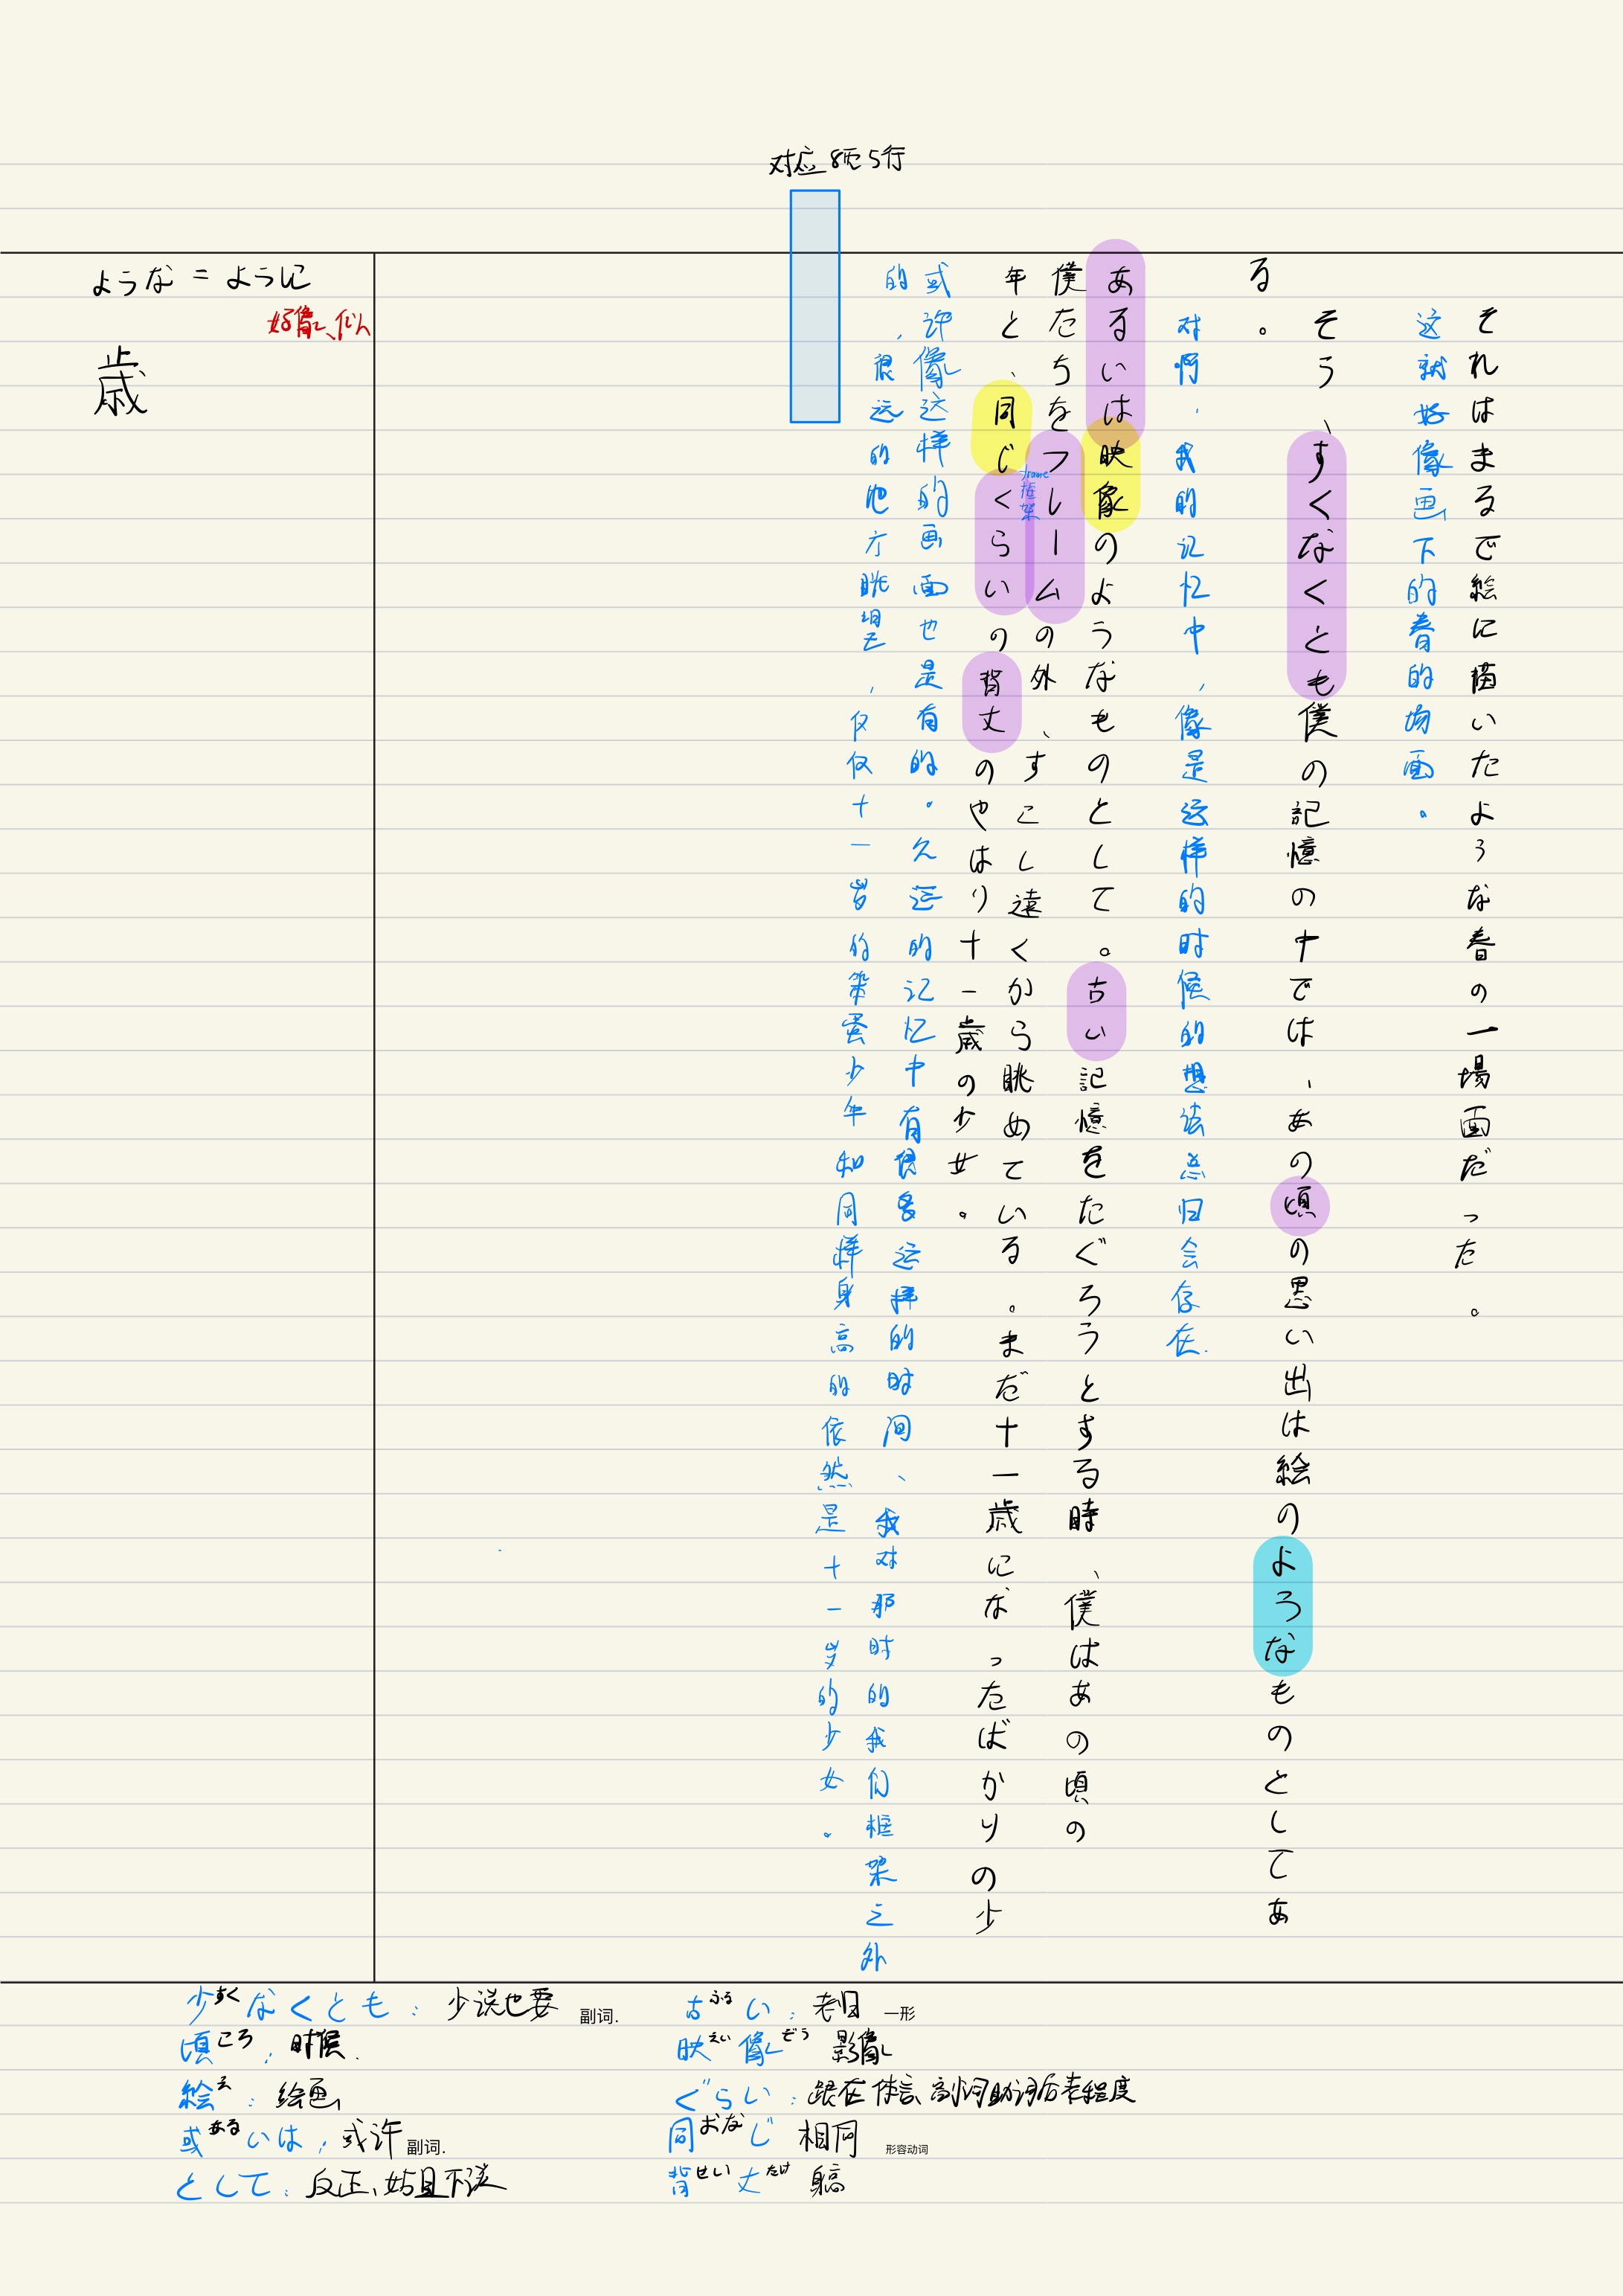 对应 8页 5行
それはまるで絵に描いたような春の一場面だった。
这就好像画下的春的场面。
そう、すくなくとも僕の記憶の中では、あの頃の思い出は絵のようなものとしてあ
る。
对啊，我的记忆中，像是这样的时候的想法总归会存在.
あるいは映像のようなものとして。古い記憶をたぐろうとする時、僕はあの頃の
僕たちをフレームの外、すこし遠くから眺めている。まだ十一歳になったばかりの少
frame
框架
年と、同じくらいの背丈のやはり十一歳の少女。
或许像这样的画面也是有的。久远的记忆中有很多这样的时间、我对那时的我们框架之外
的，很远的地方眺望，仅仅十一岁的
少年和同样身高的依然是十一岁的少女。
ような = ように
好像、似
歳
少すくなくとも：少说也要 副词.
頃ころ：时候.
絵え：绘画
或あるいは：或许 副词.
として：反正、姑且不谈
古ふるい：老旧 一形
映えい像ぞう 影像
ぐらい：跟在体言、副词助词后表程度
同おなじ 相同 形容动词
背せい丈たけ 身高